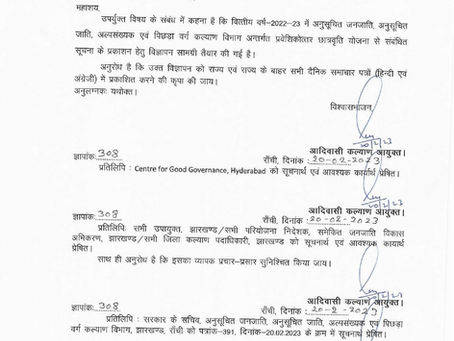 महाशय,
उपर्युक्त विषय के संबंध में कहना है कि वित्तीय वर्ष-2022-23 में अनुसूचित जनजाति, अनुसूचित
जाति, अल्पसंख्यक एवं पिछड़ा वर्ग कल्याण विभाग अन्तर्गत प्रवेशिकोत्तर छात्रवृति योजना से संबंधित
सूचना के प्रकाशन हेतु विज्ञापन सामग्री तैयार की गई है।
अनुरोध है कि उक्त विज्ञापन को राज्य एवं राज्य के बाहर सभी दैनिक समाचार पत्रों (हिन्दी एवं
अंग्रेजी) में प्रकाशित करने की कृपा की जाय।
अनुलग्नकः यथोक्त।
विश्वासभाजन,
20/2/23
आदिवासी कल्याण आयुक्त।
ज्ञापांकः 308 राँची, दिनांक : 20-02-2023
प्रतिलिपि : Centre for Good Governance, Hyderabad को सूचनार्थ एवं आवश्यक कार्यार्थ प्रेषित।
20/2/23
आदिवासी कल्याण आयुक्त।
ज्ञापांकः 308 राँची, दिनांक : 20-02-2023
प्रतिलिपिः सभी उपायुक्त, झारखण्ड/सभी परियोजना निदेशक, समेकित जनजाति विकास
अभिकरण, झारखण्ड/सभी जिला कल्याण पदाधिकारी, झारखण्ड को सूचनार्थ एवं आवश्यक कार्यार्थ
प्रेषित।
साथ ही अनुरोध है कि इसका व्यापक प्रचार-प्रसार सुनिश्चित किया जाय।
आदिवासी कल्याण आयुक्त।
ज्ञापांकः 308 राँची, दिनांक : 20-2-2023
प्रतिलिपि : सरकार के सचिव, अनुसूचित जनजाति, अनुसूचित जाति, अल्पसंख्यक एवं पिछड़ा
वर्ग कल्याण विभाग, झारखण्ड, राँची को पत्रांक-391, दिनांक-20.02.2023 के क्रम में सूचनार्थ प्रेषित।